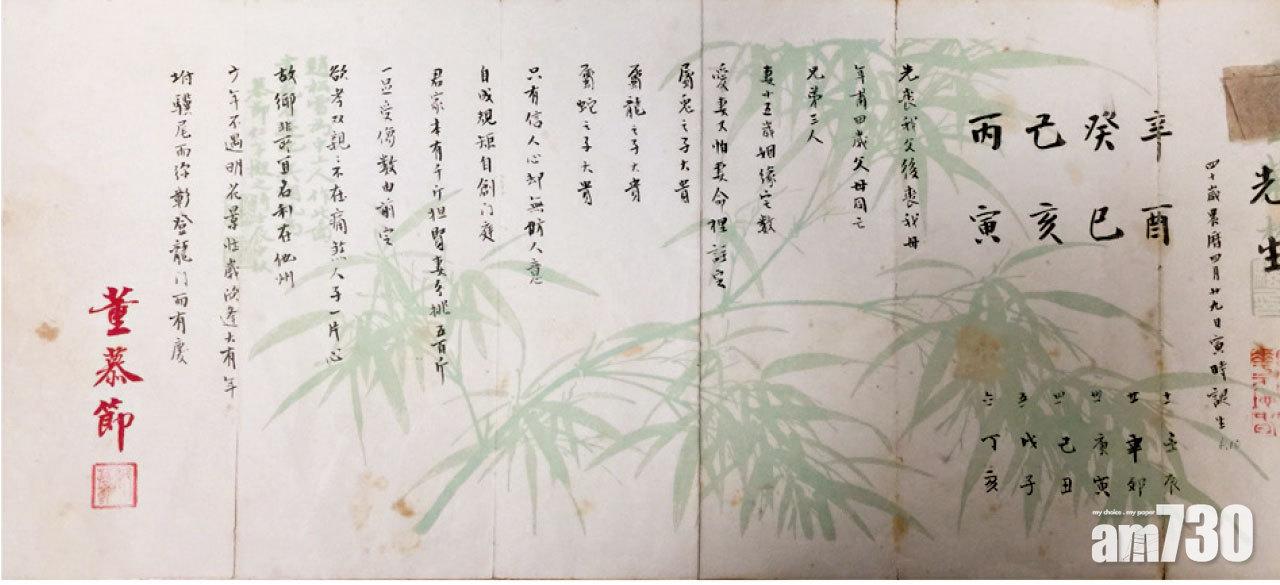 先生
四十歲農曆四月廿九日寅時誕生
辛酉
癸巳
己亥
丙寅
壬辰
廿 辛卯
卅 庚寅
卌 己丑
五 戊子
六 丁亥
先喪我父後喪我母
年前四歲父母同亡
兄弟三人
妻十五歲姻緣定數
愛妻又怕妻命裡註定
屬兔之子大貴
屬龍之子大貴
屬蛇之子大貴
只有信人心却無妨人意
自成規矩自創门庭
君家本有千斤担賢妻能挑五百斤
一旦受傷数由前定
欲孝双親親不在痛煞人子一片心
故鄉非所宜名利在他州
方年不過明花景壮歲欣逢大有年
坿驥尾而弥彰登龍门而有慶
董慕節
my choice . my paper
am730